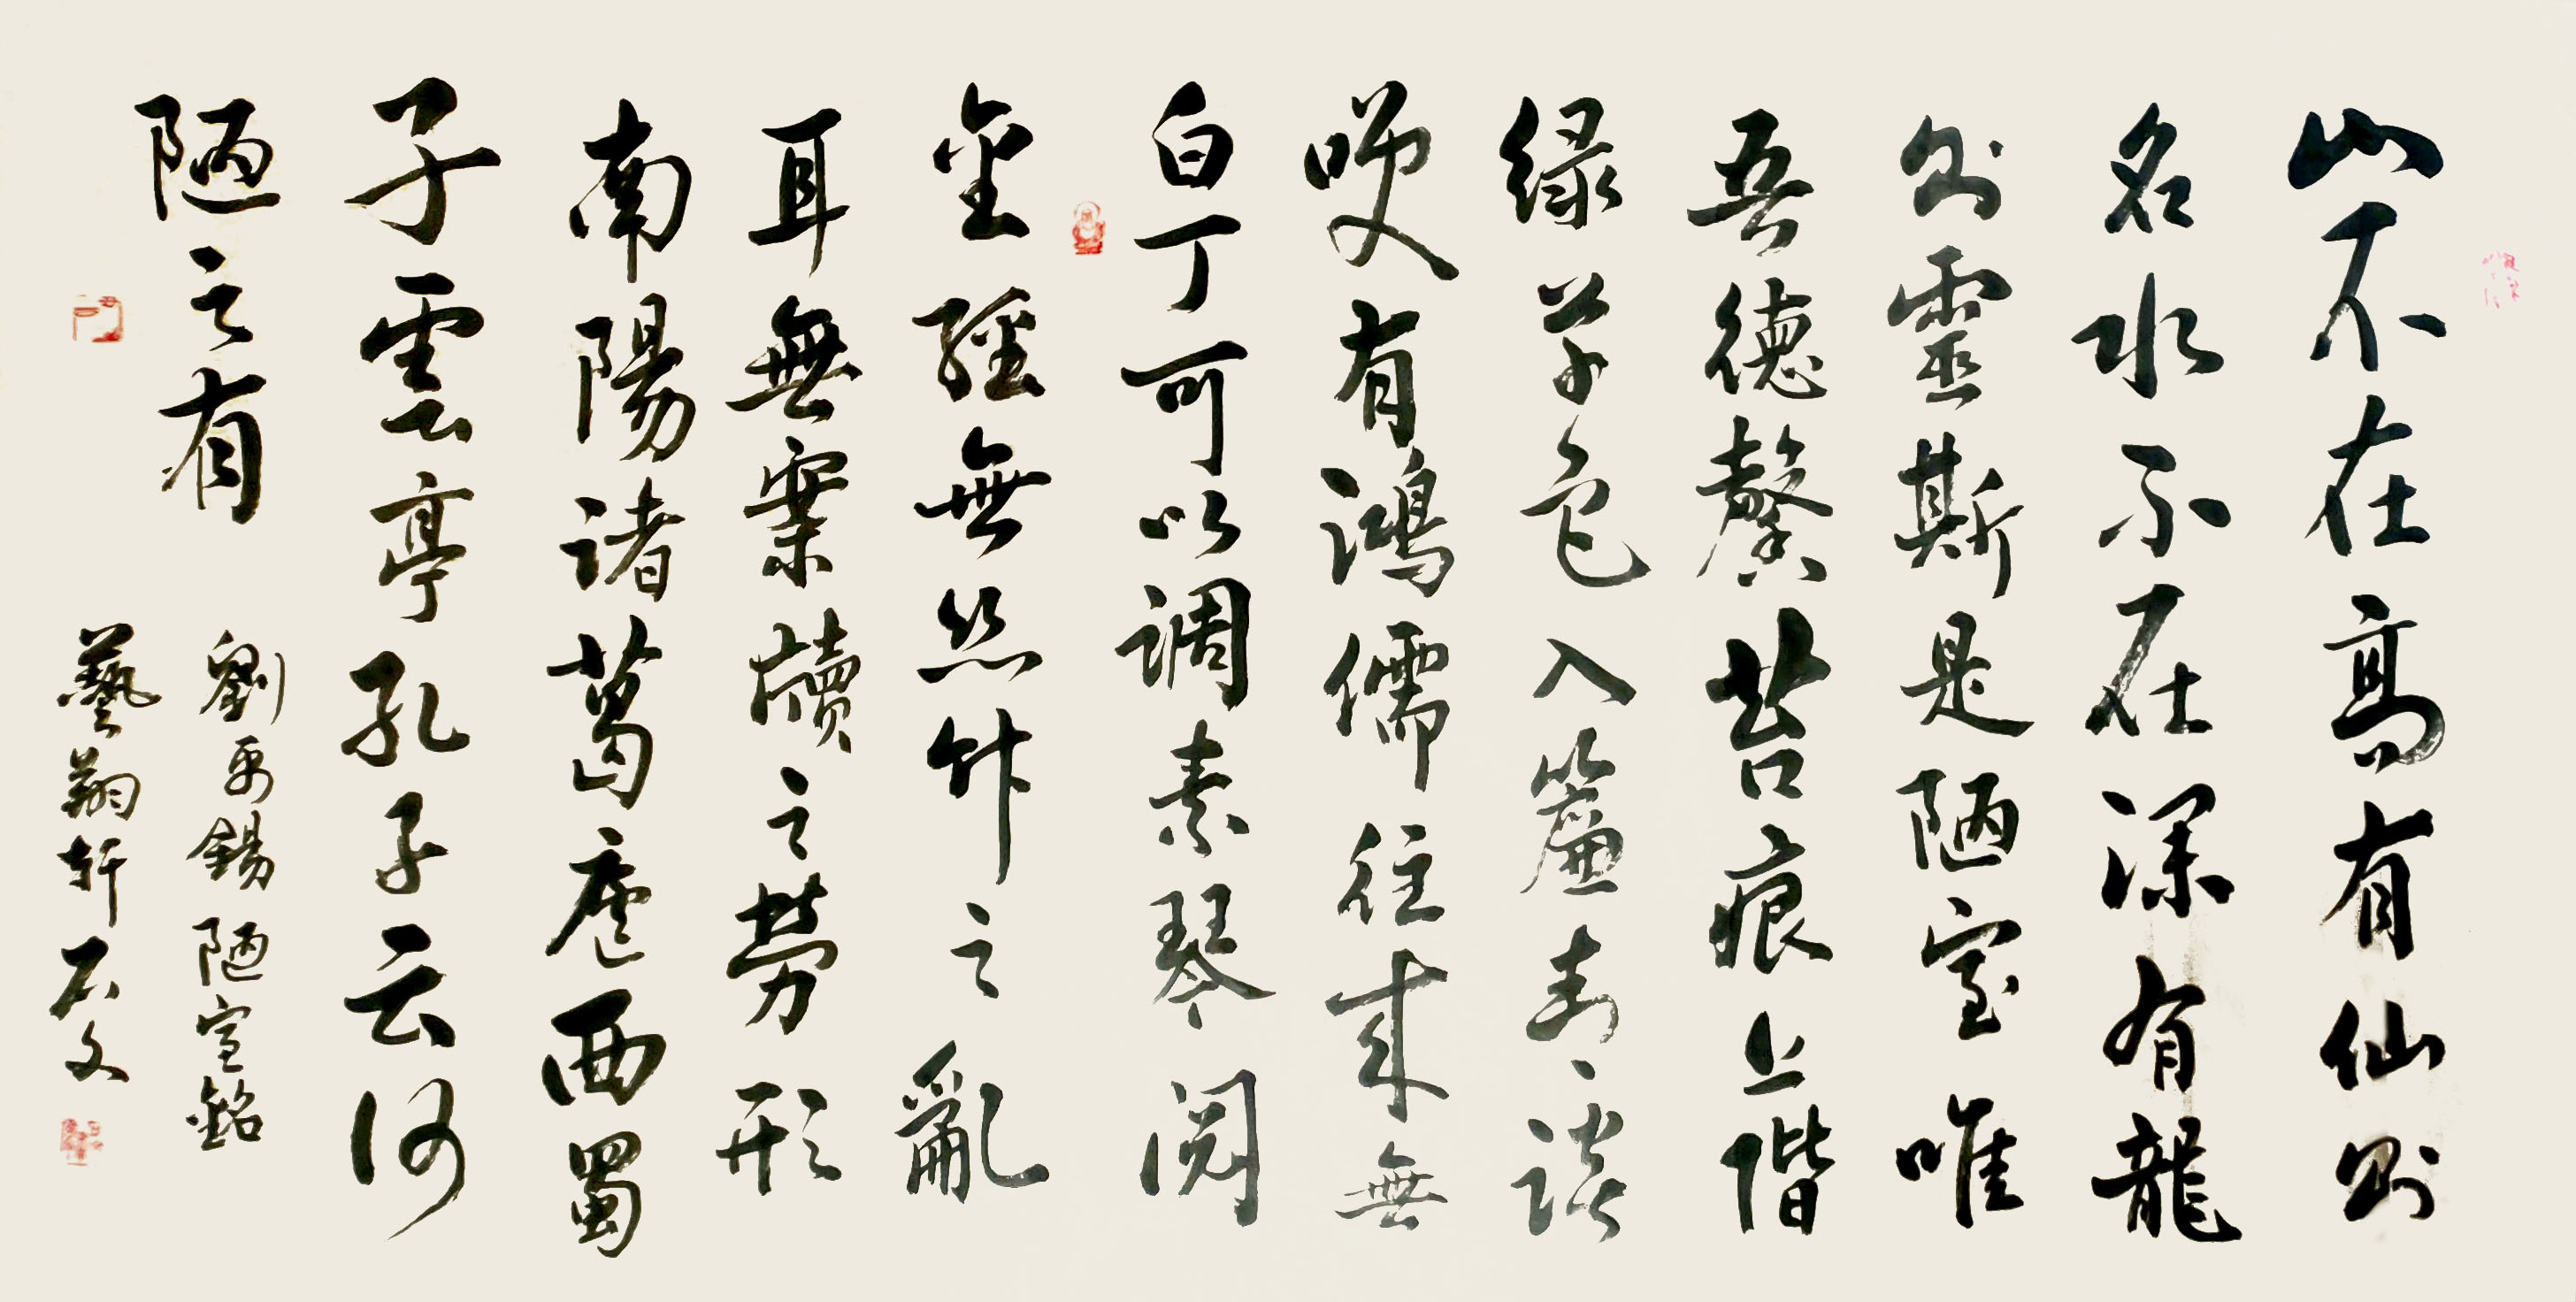 山不在高有仙則
名水不在深有龍
則靈斯是陋室唯
吾德馨苔痕上階
緑草色入簾青談
咲有鴻儒往來無
白丁可以調素琴閱
金經無絲竹之亂
耳無案牘之勞形
南陽諸葛廬西蜀
子雲亭孔子云何
陋之有
劉禹錫陋室銘
藝翔軒石文